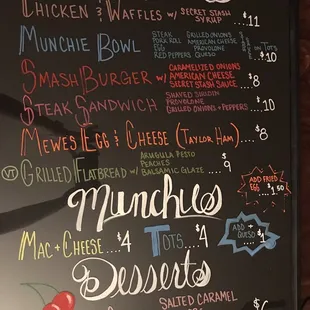 Chicken & Waffles w/ Secret Stash Syrup ...$11
Munchie Bowl Steak Pork Roll Egg Red Peppers Grilled Onions American Cheese Provolone Queso on Tots $10
Smash Burger w/ Caramelized Onions American Cheese Secret Stash Sauce ...$8
Steak Sandwich Shaved Sirloin Provolone Grilled Onions + Peppers ....$10
Mewes Egg & Cheese (Taylor Ham) ...$8
VT Grilled Flatbread w/ Arugula Pesto Peaches Balsamic Glaze ....$9
Add Fried Egg ...$1.50
Munchies
Mac + Cheese ..$4 Tots ...$4
Add + Queso ...$1
Desserts
Salted Caramel